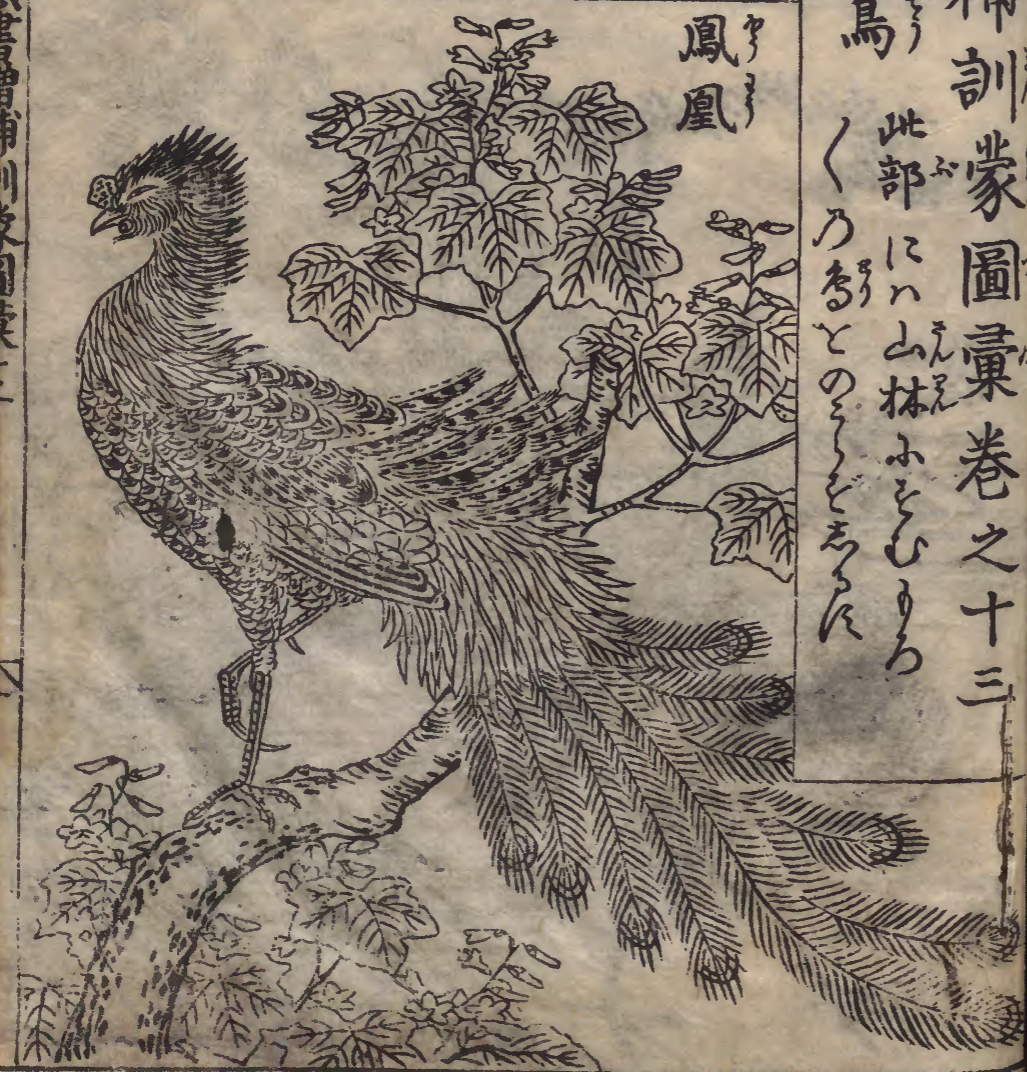 補訓蒙圖彙巻之十三
鳥
此部にハ山林にすむもろ
〳〵の鳥をのこらず志るす
鳳凰
書增補訓蒙圖彙